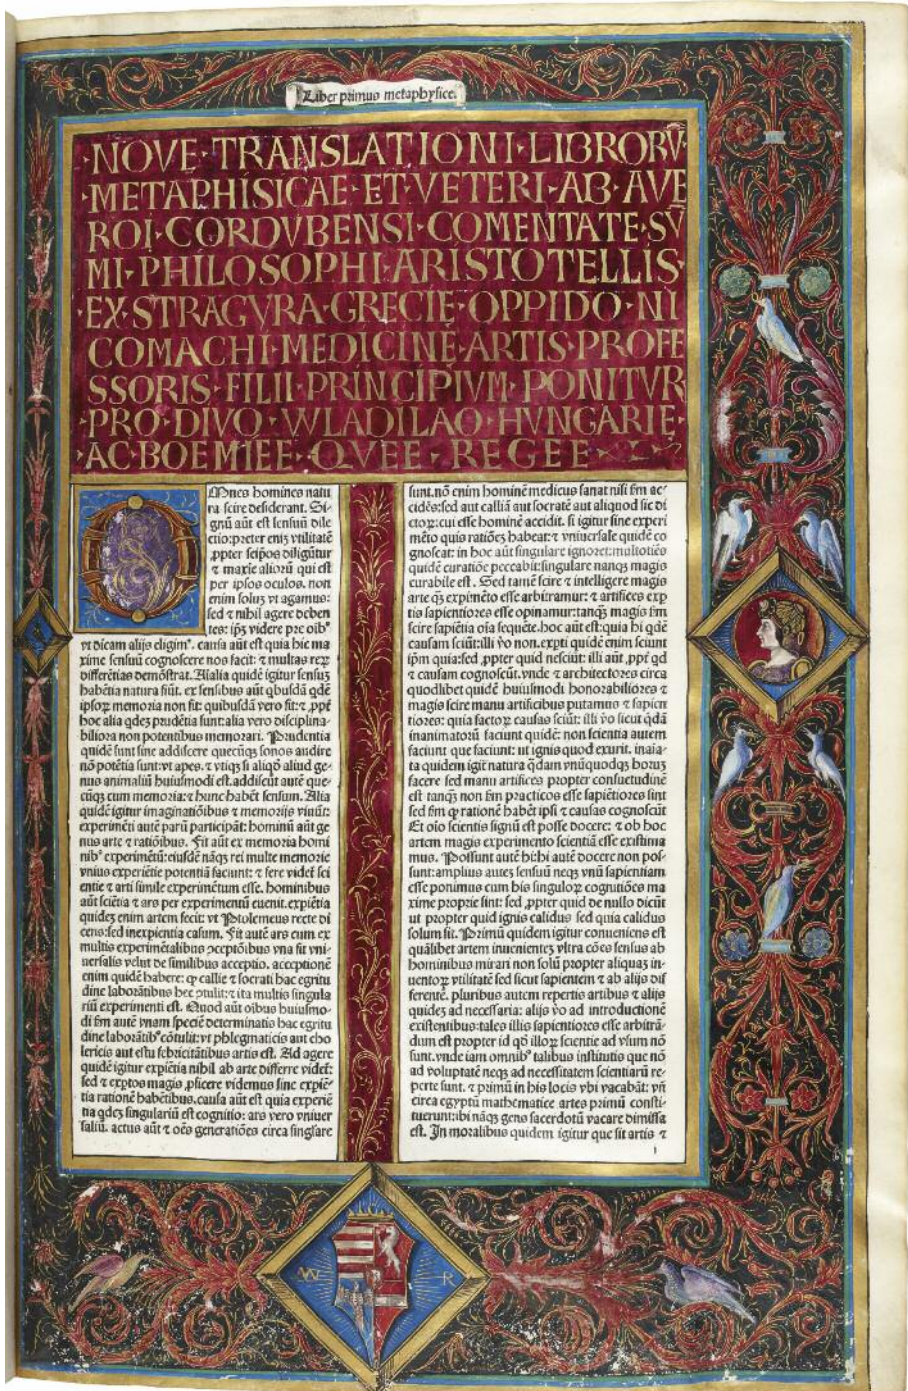 Liber primus metaphysice.
·NOVE·TRANSLATIONI·LIBRORV̄·
METAPHISICAE·ET·VETERI·AB·AVE
ROI·CORDVBENSI·COMENTATE·SV̄
MI·PHILOSOPHI·ARISTOTELLIS·
·EX·STRAGVRA·GRECIE·OPPIDO·NI
COMACHI·MEDICINE·ARTIS·PROFE
SSORIS·FILII·PRINCIPIVM·PONITVR
·PRO·DIVO·WLADILAO·HVNGARIE·
·AC·BOEMIEE·QVEE·REGEE
OMnes homines natu
ra scire desiderant. Si⸗
gnū aūt est sensuū dile
ctio:preter eniȝ vtilitatē
ꝓpter seipos diligūtur
⁊ maxīe aliorū qui est
per ipsos oculos. non
enim soluȝ vt agamus:
sed ⁊ nihil agere deben
tes: ip̄ȝ videre pre oibꝰ
vt dicam alijs eligimꝰ. causa aūt est quia hic ma
xime sensuū cognoscere nos facit: ⁊ multas reꝝ
differētias demōstrat. Aīalia quidē igitur sensuȝ
habētia natura fiūt. ex sensibus aūt qbusdā qdē
ipsoꝝ memoria non fit: quibusdā vero fit:⁊ ꝓpt̄
hoc alia qdeȝ prudētia sunt:alia vero disciplina⸗
biliora non potentibus memorari. Prudentia
quidē sunt sine addiscere quecūqȝ sonos audire
nō potētia sunt:vt apes. ⁊ vtiqȝ si aliqd̄ aliud ge⸗
nus animaliū huiusmodi est.addiscūt autē que⸗
cūqȝ cum memoria:⁊ hunc habēt sensum. Alia
quidē igitur imaginatiōibus ⁊ memorijs viuūt:
experimēti autē parū participāt: hominū aūt ge
nus arte ⁊ ratiōibus. Fit aūt ex memoria homi
nibꝰ experimētū:eiusdē nāqȝ rei multe memorie
vnius experiētie potentiā faciunt: ⁊ fere videt̄ sci
entie ⁊ arti simile experimētum esse. hominibus
aūt sciētia ⁊ ars per experimentū euenit. expiētia
quideȝ enim artem fecit: vt Ptolemeus recte di
cens:sed inexpientia casum. Fit autē ars cum ex
multis experimētalibus ꝯceptiōibus vna fit vni⸗
uersalis velut de similibus acceptio. acceptionē
enim quidē habere: ꝙ callie ⁊ socrati hac egritu
dine laborātibus hec ꝯtulit:⁊ ita multis singula
riū experimenti est. Quod aūt oibus huiusmo⸗
di ẜm autē vnam speciē determinatis hac egritu
dine laborātibꝰ cōtulit: vt phlegmaticis aut cho
lericis aut estu febricitātibus artis est. Ad agere
quidē igitur expiētia nihil ab arte differre videt̄:
sed ⁊ exptos magis ꝓficere videmus sine expiē⸗
tia rationē habētibus.causa aūt est quia experiē
tia qdeȝ singulariū est cognitio: ars vero vniuer
saliū. actus aūt ⁊ oēs generatiōes circa singlare
sunt.nō enim hominē medicus sanat nisi ẜm ac⸗
cidēs:sed aut calliā aut socratē aut aliquod sic di
ctoꝝ:cui esse hominē accidit. si igitur sine experi
mēto quis ratiōeȝ habeat: ⁊ vniuersale quidē co
gnoscat: in hoc aūt singulare ignoret:multotiēs
quidē curatiōe peccabit:singulare nanqȝ magis
curabile est. Sed tamē scire ⁊ intelligere magis
arte qȝ expimēto esse arbitramur: ⁊ artifices exp
tis sapientiores esse opinamur:tanqȝ magis ẜm
scire sapiētia oīa sequēte.hoc aūt est:quia hi qdē
causam sciūt:illi ꝟo non.expti quidē enim sciunt
ip̄m quia:sed ꝓpter quid nesciūt: illi aūt ꝓpt̄ qd
⁊ causam cognoscūt.vnde ⁊ architectores circa
quodlibet quidē huiusmodi honorabiliores ⁊
magis scire manu artificibus putamus ⁊ sapien
tiores: quia factoꝝ causas sciūt: illi ꝟo sicut qdā
inanimatorū faciunt quidē: non scientia autem
faciunt que faciunt: ut ignis quod exurit. inaīa⸗
ta quidem igit̄ natura qdam vnūquodqȝ horuȝ
facere sed manu artifices propter consuetudinē
est tanqȝ non ẜm practicos esse sapiētiores sint
sed ẜm ꝙ rationē habēt ip̄i ⁊ causas cognoscūt
Et oīo scientis signū est posse docere: ⁊ ob hoc
artem magis experimento scientiā esse existima
mus. Possunt autē hi:hi autē docere non pos⸗
sunt:amplius auteȝ sensuū neqȝ vnū sapientiam
esse ponimus cum his singuloꝝ cognitiōes ma
xime proprie sint: sed ꝓpter quid de nullo dicūt
ut propter quid ignis calidus sed quia calidus
solum sit. Primū quidem igitur conueniens est
quālibet artem inuenienteȝ vltra cōes sensus ab
hominibus mirari non solū propter aliquaȝ in⸗
uentoꝝ vtilitatē sed sicut sapientem ⁊ ab alijs dif
ferentē. pluribus autem repertis artibus ⁊ alijs
quideȝ ad necessaria: alijs ꝟo ad introductionē
existentibus:tales illis sapientiores esse arbitrā⸗
dum est propter id qd̄ illoꝝ scientie ad vsum nō
sunt.vnde iam omnibꝰ talibus institutis que nō
ad voluptatē neqȝ ad necessitatem scientiarū re⸗
perte sunt. ⁊ primū in his locis vbi vacabāt: vn̄
circa egyptū mathematice artes primū consti⸗
tuerunt:ibi nāqȝ gens sacerdotū vacare dimissa
est. In moralibus quidem igitur que sit artis ⁊
1
W R